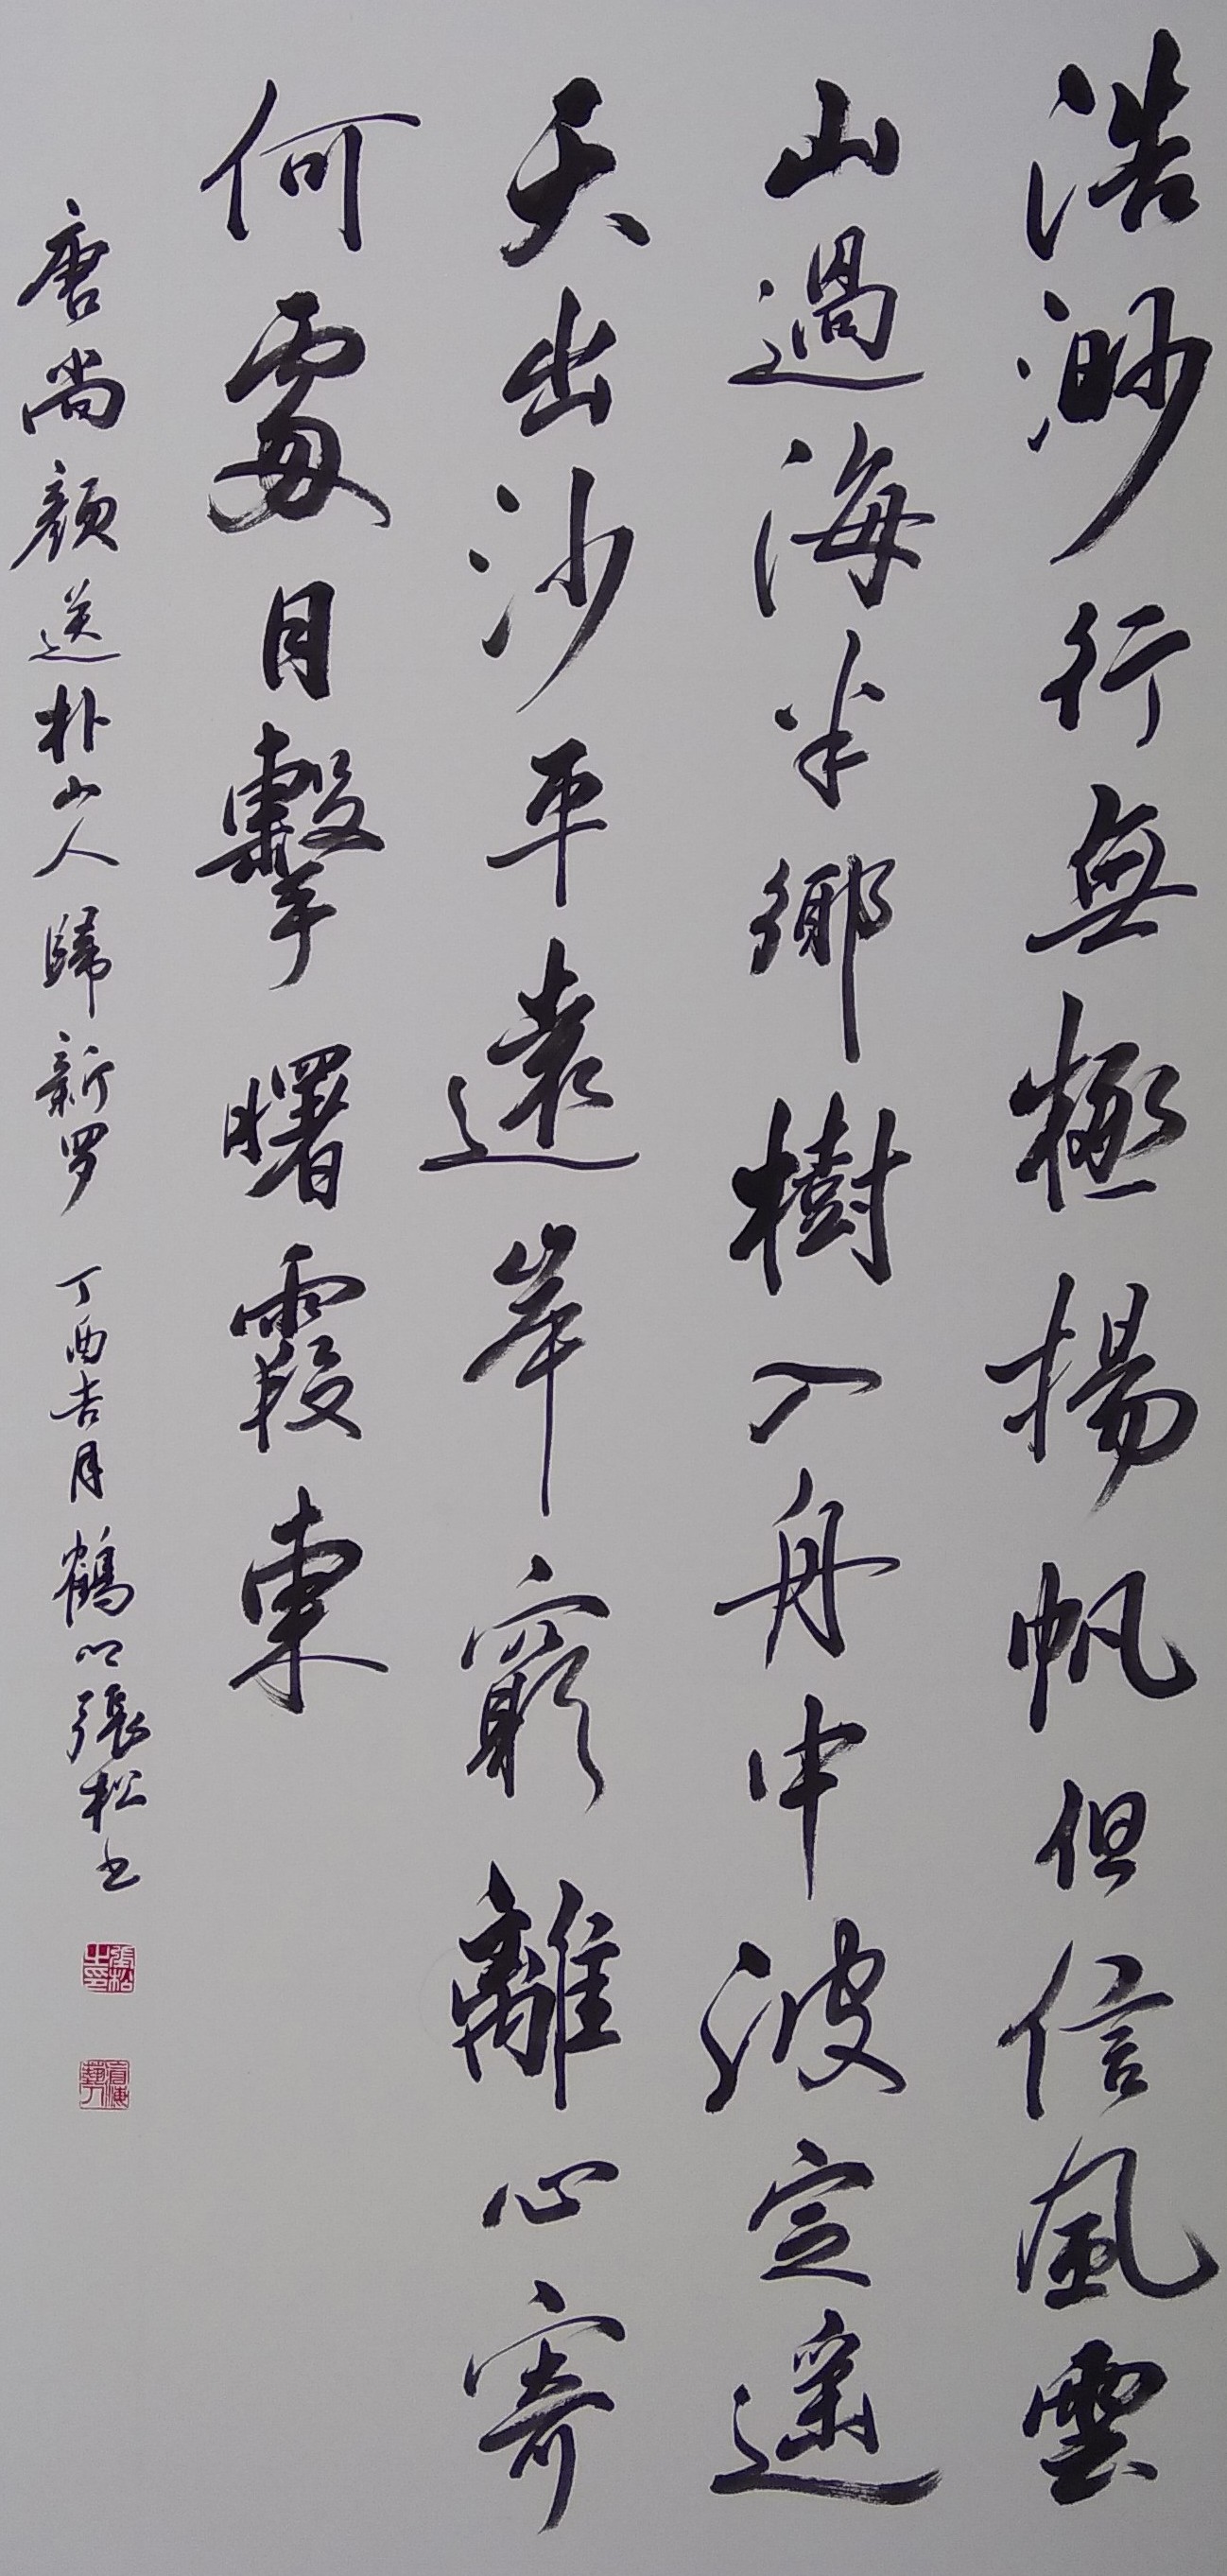 浩渺行無極揚帆但信風雲
山過海半鄉樹入舟中波定遥
天出沙平遠岸窮離心寄
何處目擊曙霞東
唐尚顔送朴山人歸新罗 丁酉吉月鶴心張松书
張松之印